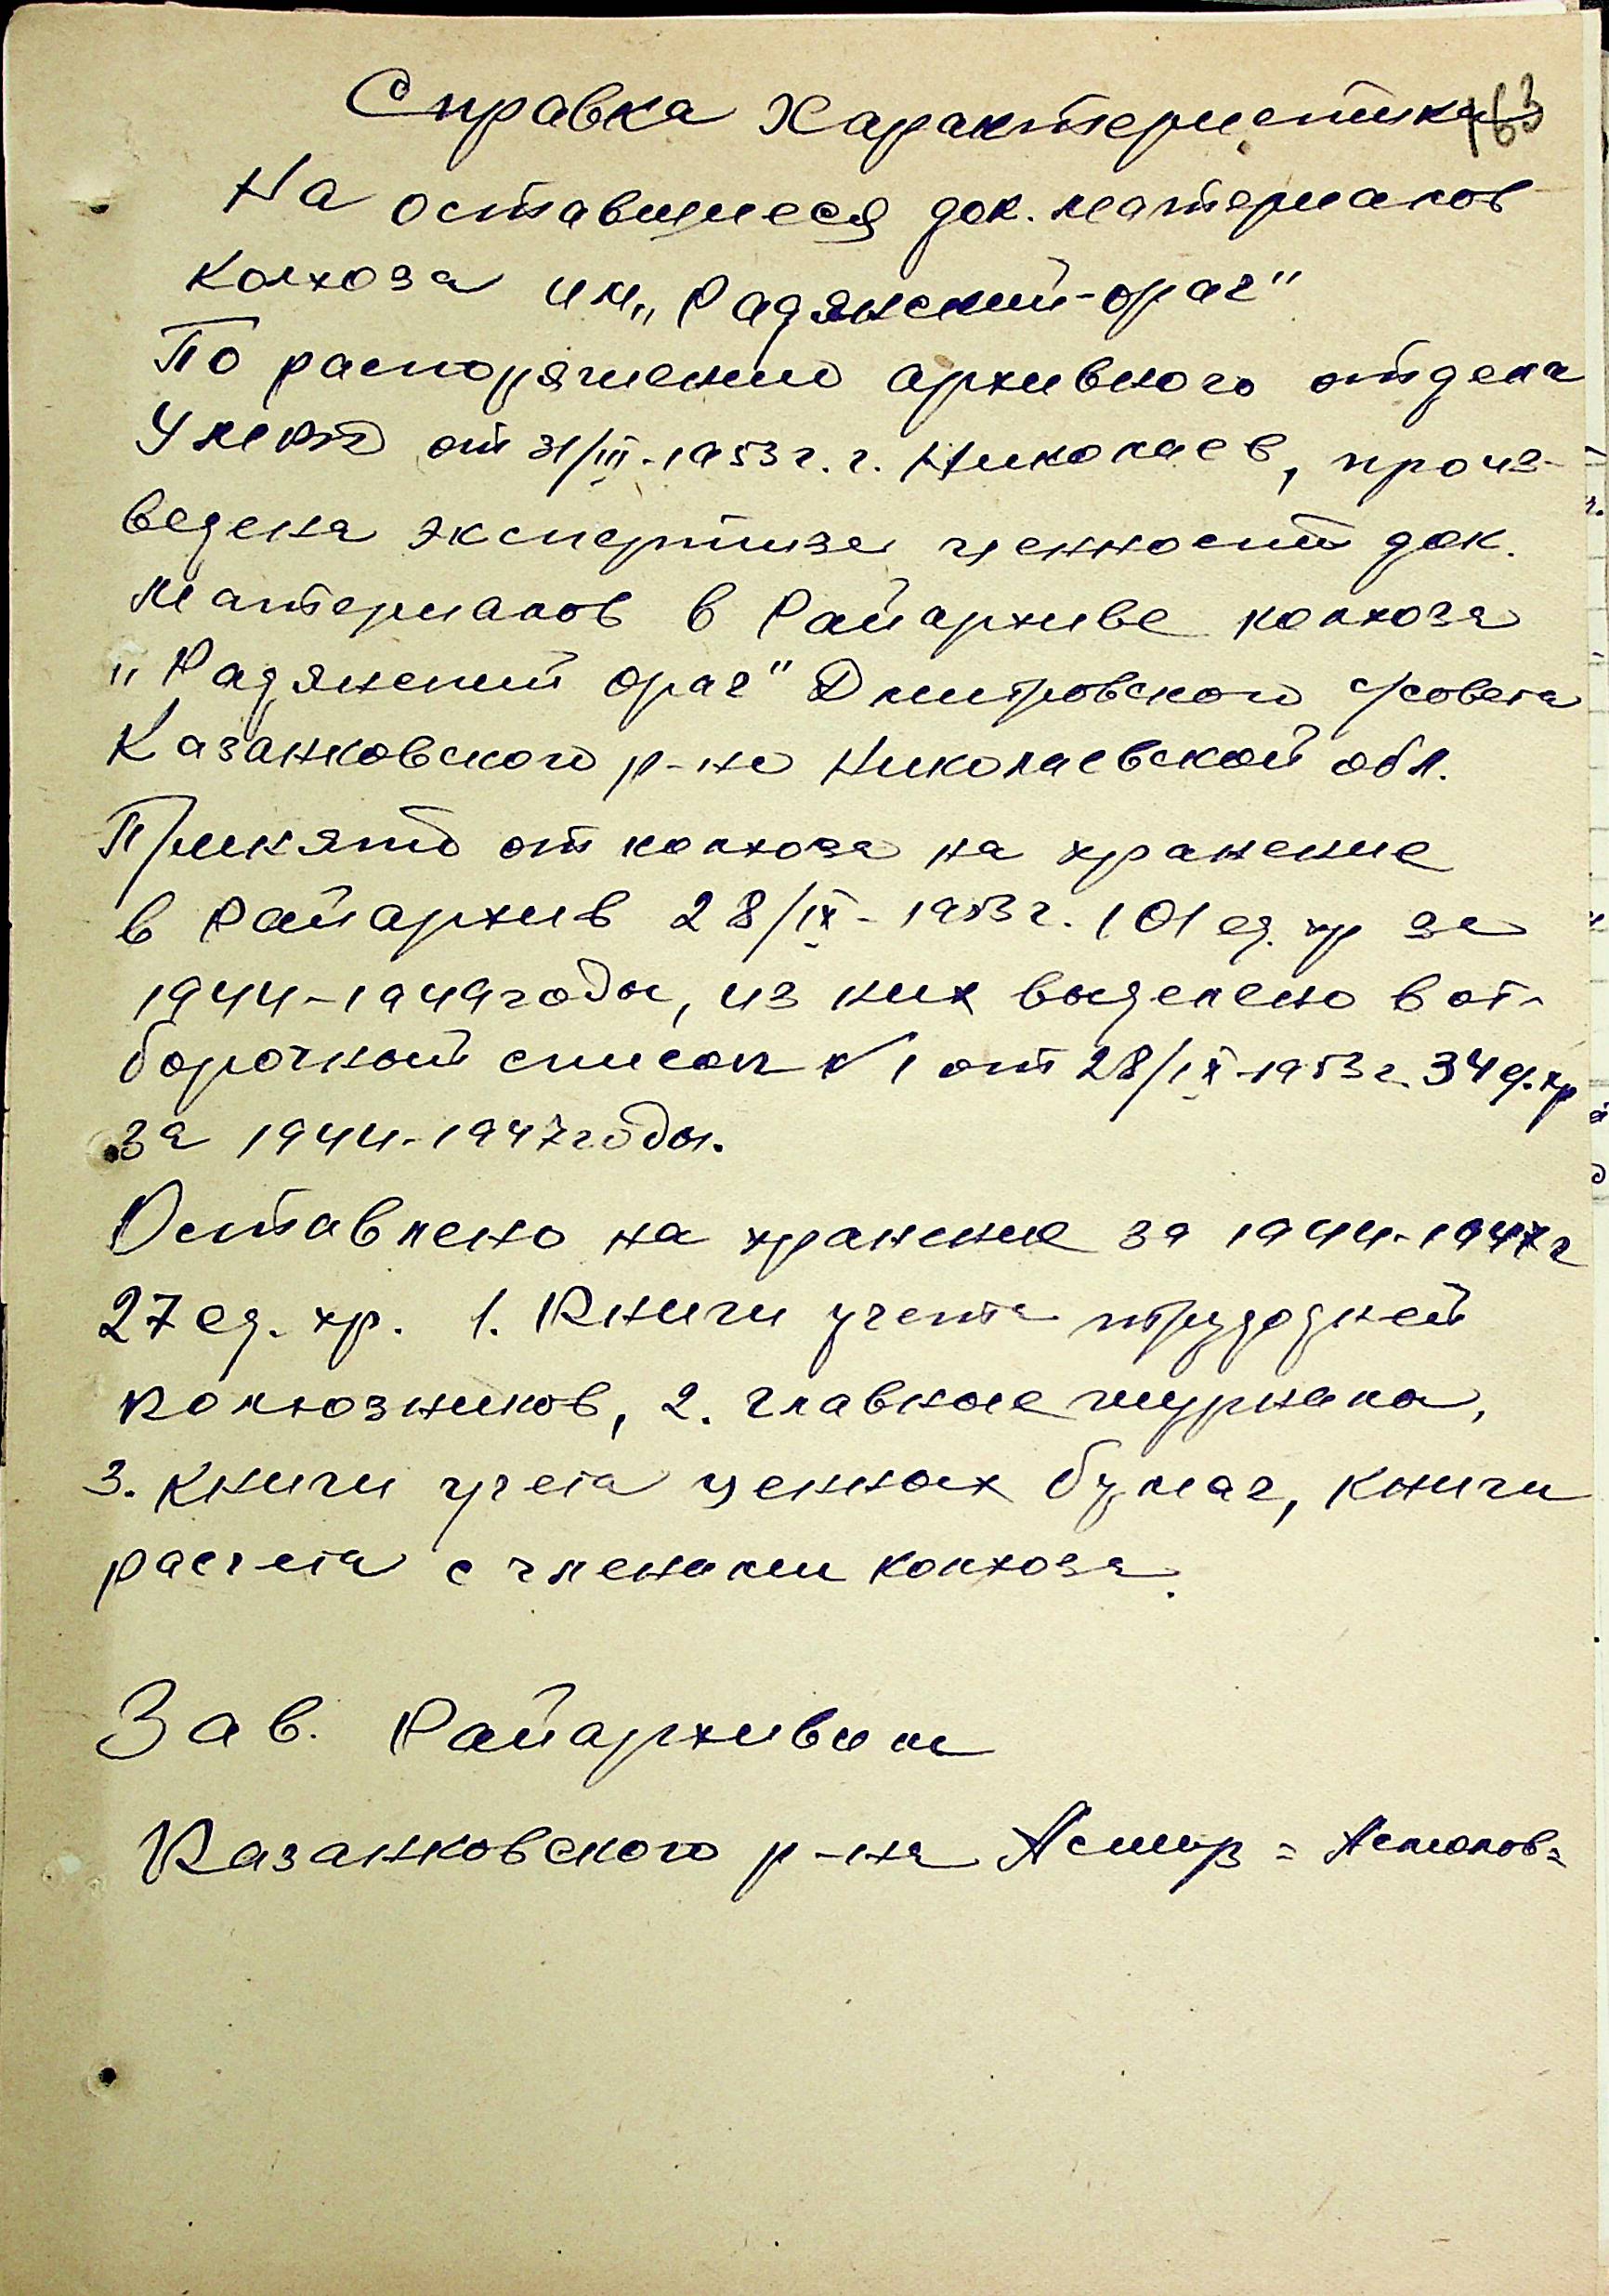 163
Справка Характеристика
На оставшиеся док. материалов
колхоза им „Радянский-орач"
По распоряжению архивного отдела
от 31/III-1953 г. г. Николаев, произ-
ведена экспертиза ценности док.
материалов в Райархиве колхоза
"Радянский орач" Дмитровского с/совета
Казанковского р-на Николаевской обл.
Принято от колхоза на хранение
в Райархив 28/IX-1953 г. 101 ед. хр за
1944-1949 годы, из них выделено в от-
борочный список № 1 от 28/IX-1953 г. 34 д.хр
за 1944-1947 годы.
Оставлено на хранение за 1944-1947 г
27 ед. хр. 1. Книги учета трудодней
колхозников, 2. главные журнала,
3. Книги учета ценных бумаг, книги
расчета с членами колхоза.
Зав. Райархивом
Казанковского р-на